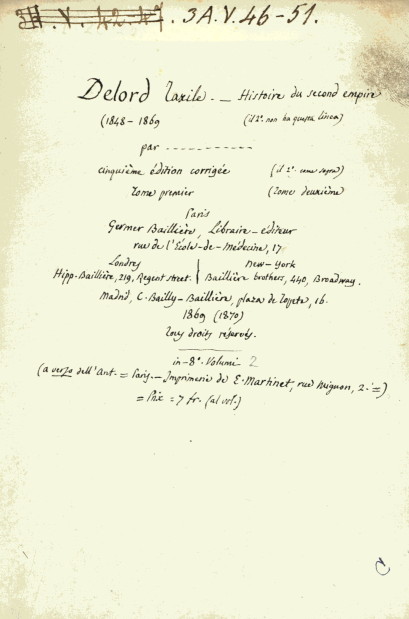 3A.V.46-51.
Delord Taxile. — Histoire du second empire
(1848-1869 (il 2º. non ha questa linea)
par -----------
cinquième édition corrigée (il 2º. come sopra)
Tome premier (Tome deuxième
Paris
Germer Baillière, Libraire-éditeur
rue de l'Ecole-de-Médecine, 17
Londres New-York
Hipp-Baillière, 219, Regent street. Baillière brothers, 440, Broadway.
Madrid, C. Bailly-Baillière, plaza de Topete, 16.
1869 (1870)
Tous droits réservés.
in-8º. Volumi 2
(a verso dell'Ant. = Paris. — Imprimerie de E. Martinet, rue Mignon, 2. =)
= Prix = 7 fr. (al vol.)